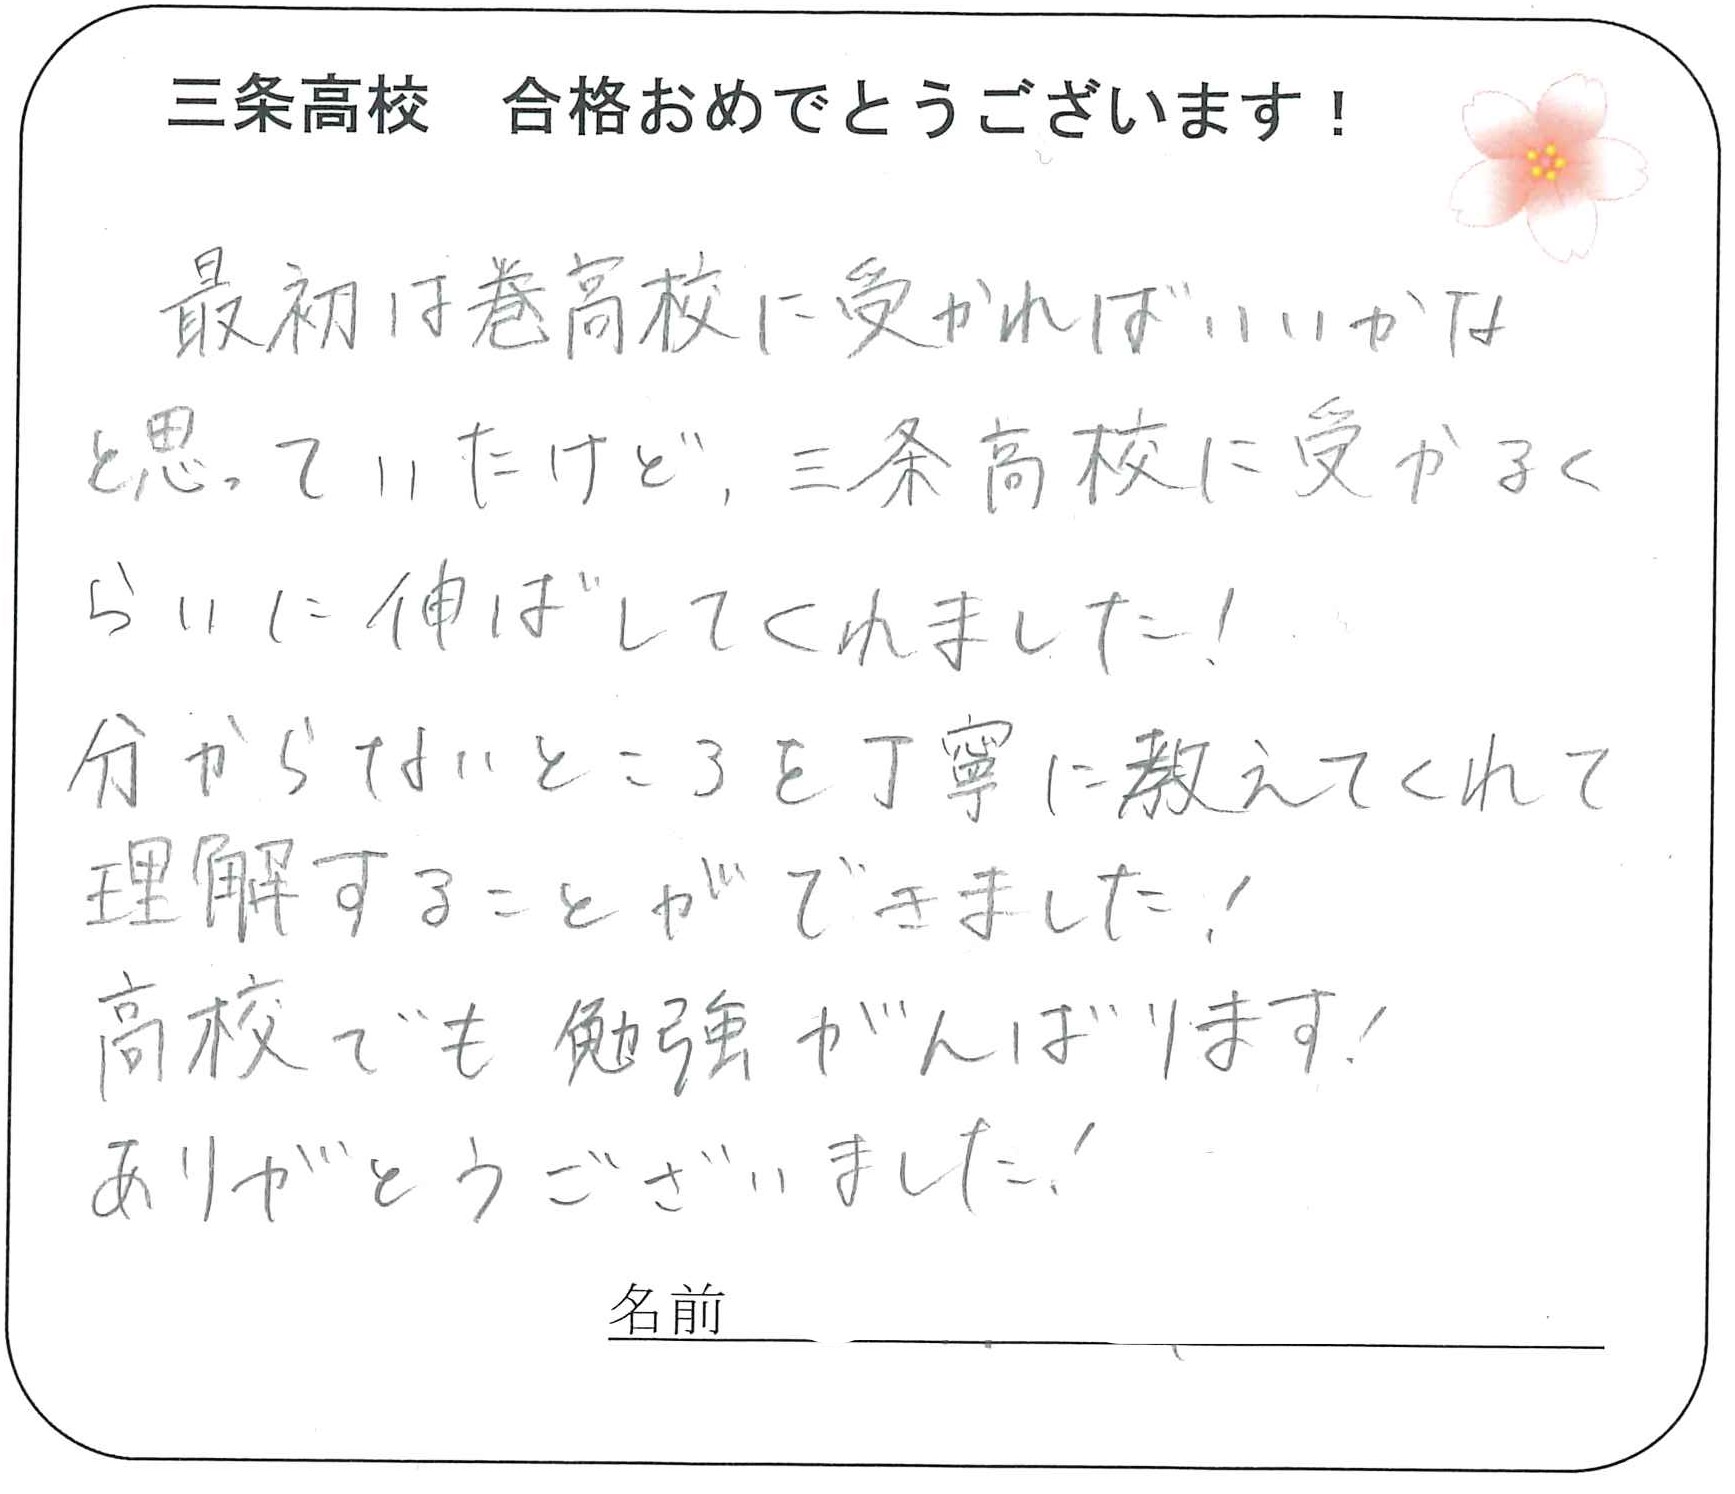 三条高校　合格おめでとうございます！
最初は巻高校に受かればいいかな
と思っていたけど、三条高校に受かるく
らいに伸ばしてくれました！
分からないところを丁寧に教えてくれて
理解することができました！
高校でも勉強がんばります！
ありがとうございました！
名前